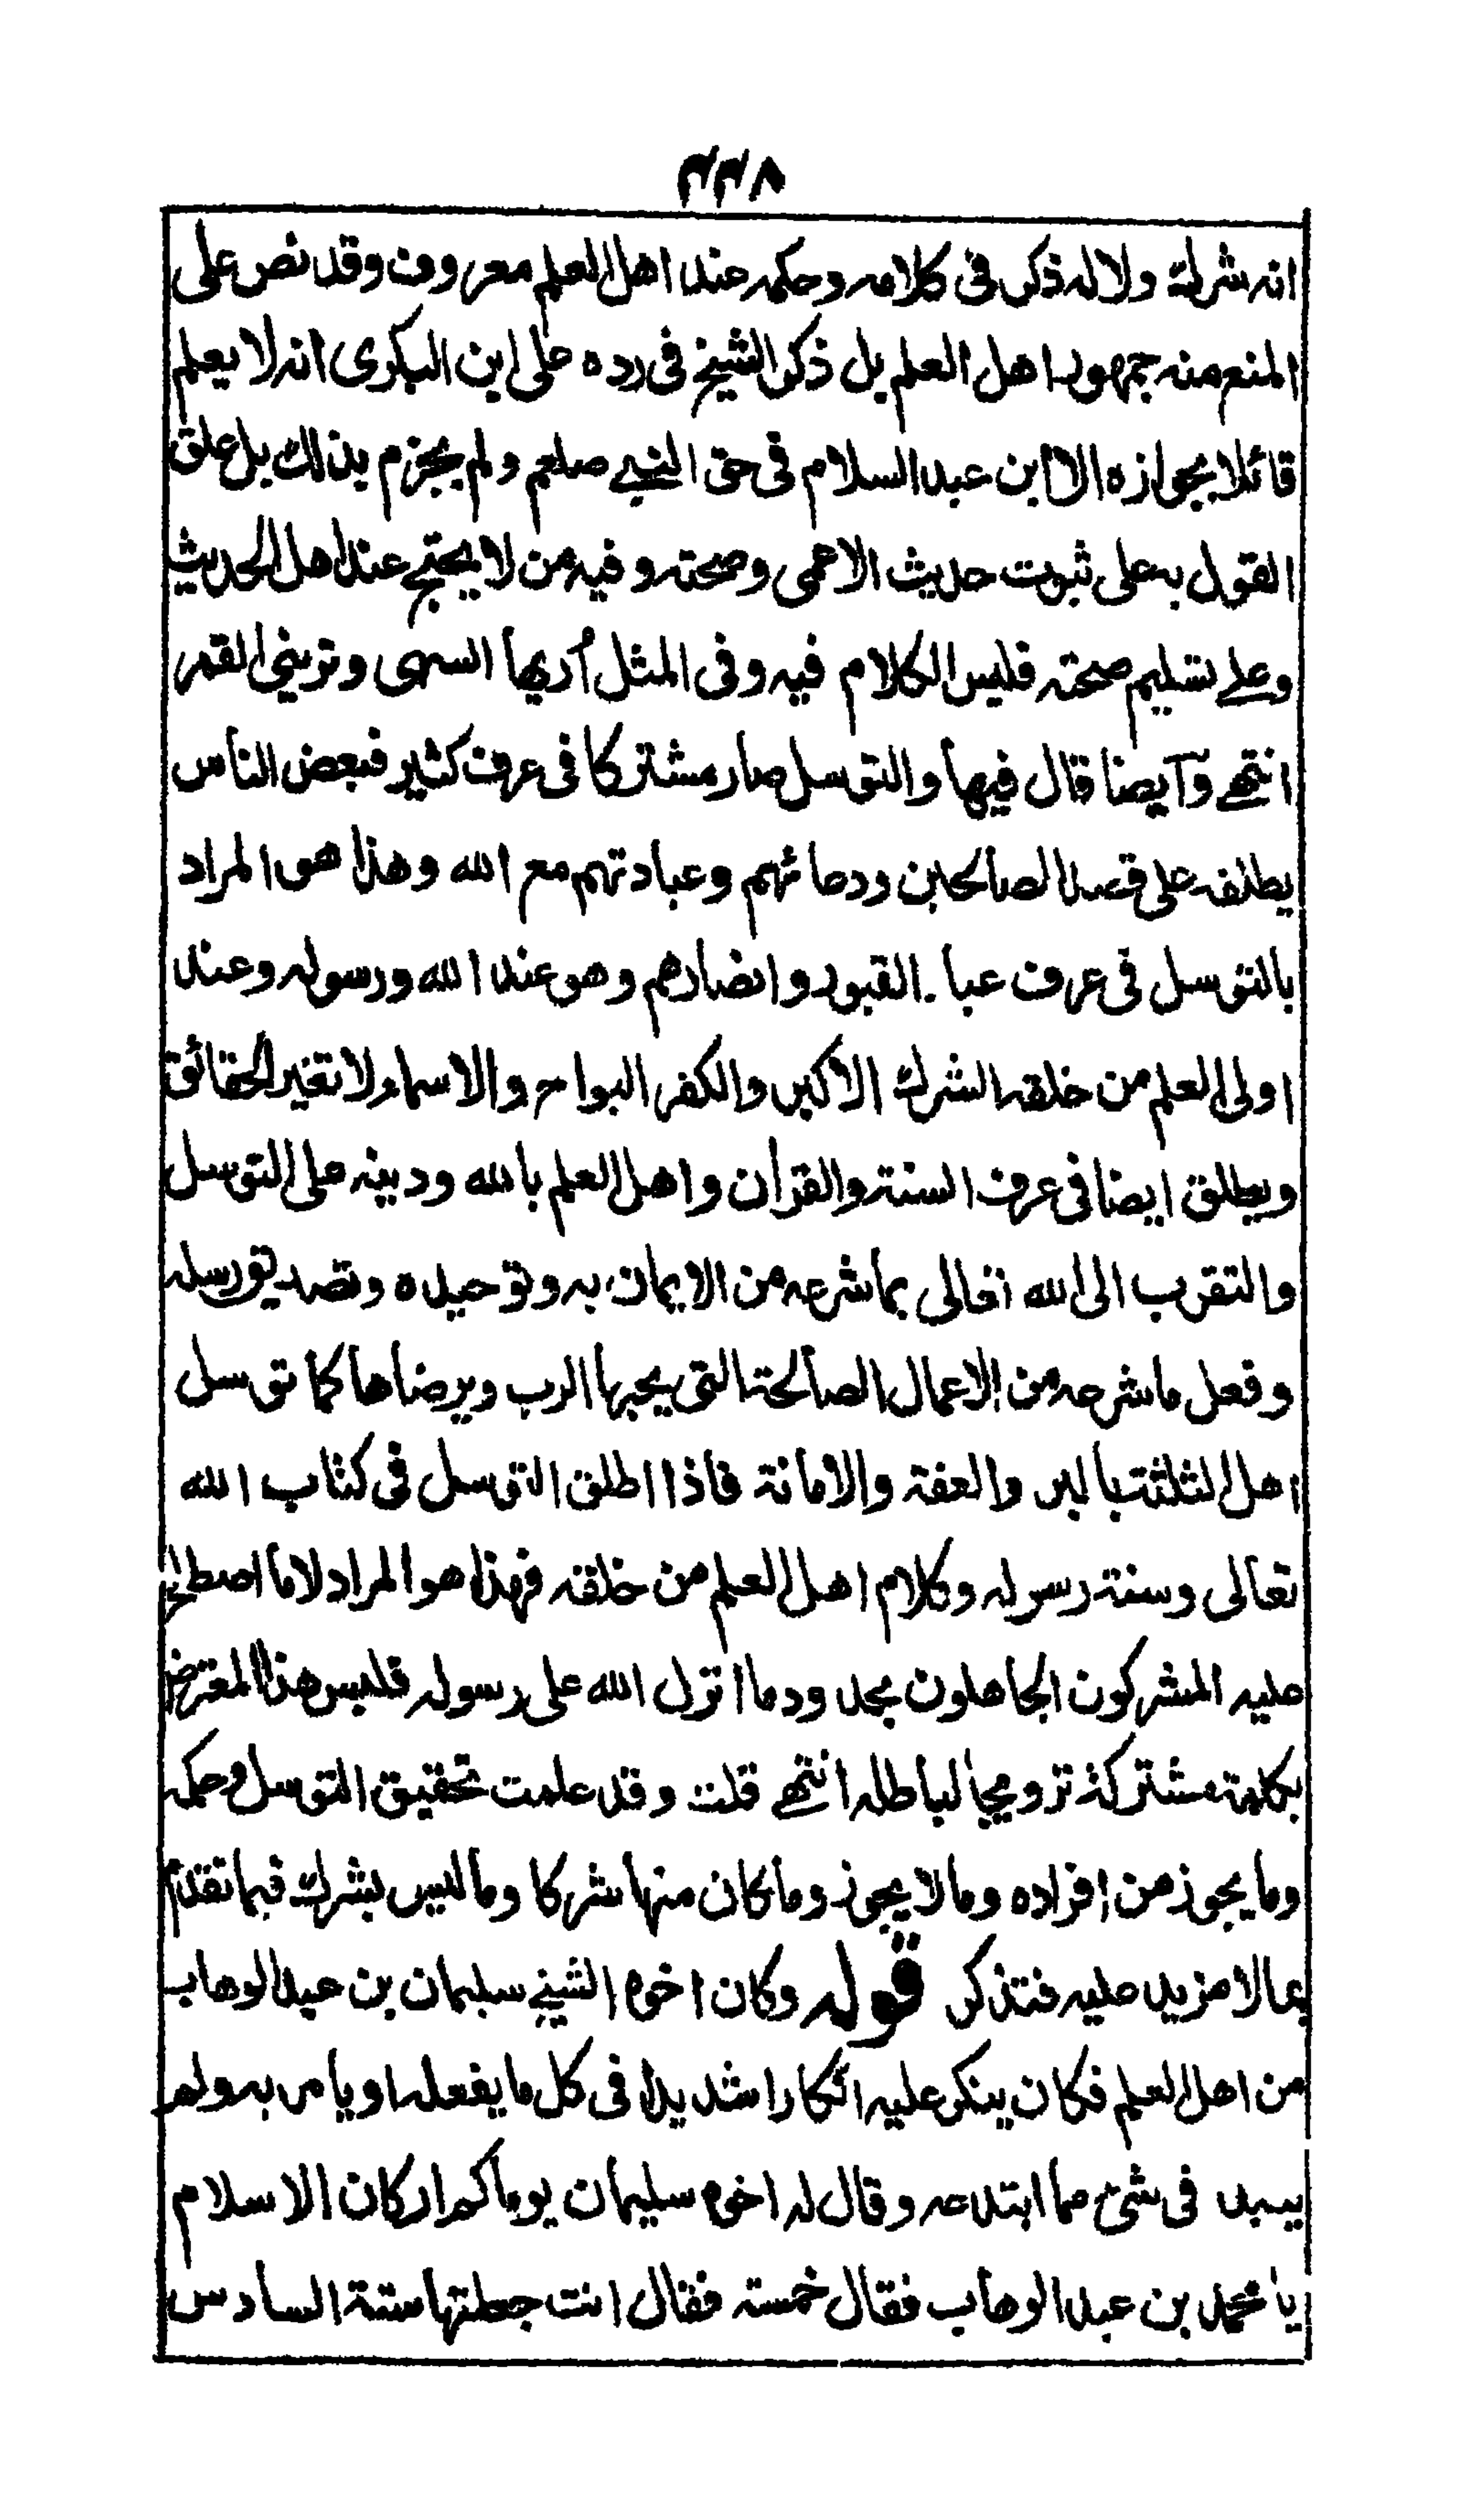 ٣٣٨
انه شرك ولا له ذكر فى كلامه وحكمه عند اهل العلم معروف وقد نص على
المنع منه جمهور اهل العلم بل ذكر الشيخ فى رده على ابن البكرى انه لا يعلم
قائلا بجوازه الا ابن عبد السلام فى حق النبے صلعم ولم يجزم بذلك بل علق
القول به على ثبوت حديث الاعمى وصحته وفيه من لا يحتج عند اهل الحديث
وعلے تسليم صحته فليس الكلام فيه وفى المثل أريها السهى وترينى القمر
انتهے وآيضا قال فيها والتوسل صار مشتركا فى عرف كثير فبعض الناس
يطلقه على قصد الصالحين ودعائهم وعبادتهم مع الله وهذا هو المراد
بالتوسل فى عرف عباد القبور وانضارهم وهو عند الله ورسوله وعند
اولى العلم من خلقه الشرك الاكبر والكفر البواح والاسماء لا تغير الحقائق
ويطلق ايضا فى عرف السنة والقرآن واهل العلم بالله ودينه على التوسل
والتقرب الى الله تعالى بما شرعه من الايمان به وتوحيده وتصديق رسله
وفعل ما شرعه من الاعمال الصالحة التى يحبها الرب ويرضاها كما توسل
اهل الثلثة بالبر والعفة والامانة فاذا اطلق التوسل فى كتاب الله
تعالى وسنة رسوله وكلام اهل العلم من خلقه فهذا هو المراد لا ما اصطلح
عليه المشركون الجاهلون بحدود ما انزل الله على رسوله فلبس هذا المعترض
بكلمة مشتركة ترويجا لباطله انتهے قلت وقد علمت تحقيق التوسل وحكمه
وما يجوز من افراده وما لا يجوز وما كان منها شركا وما ليس بشرك فيما تقدم
بما لا مزيد عليه فتذكر قوله وكان اخوه الشيخ سليمان بن عبد الوهاب
من اهل العلم فكان ينكر عليه انكارا شديدا فى كل ما يفعله او يامر به ولم
يبعد فى شئ مما ابتدعه وقال له اخوه سليمان يوما كم اركان الاسلام
يا محمد بن عبد الوهاب فقال خمسة فقال انت جعلتها ستة السادس